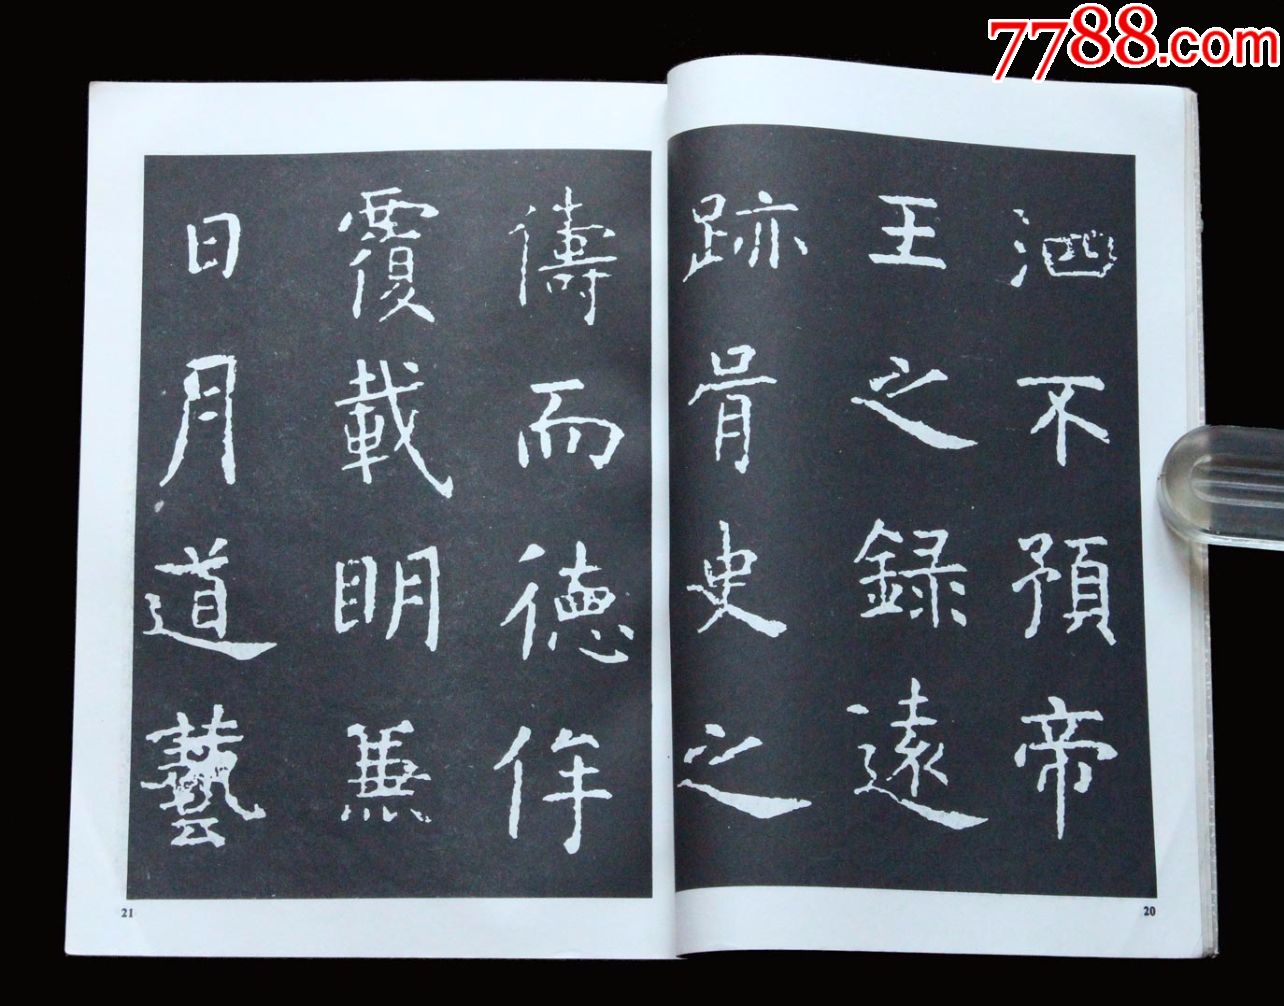 7788.com
泗不預帝
王之録遠
跡胥史之
儔而德侔
覆載眀兼
日月道藝
20
21